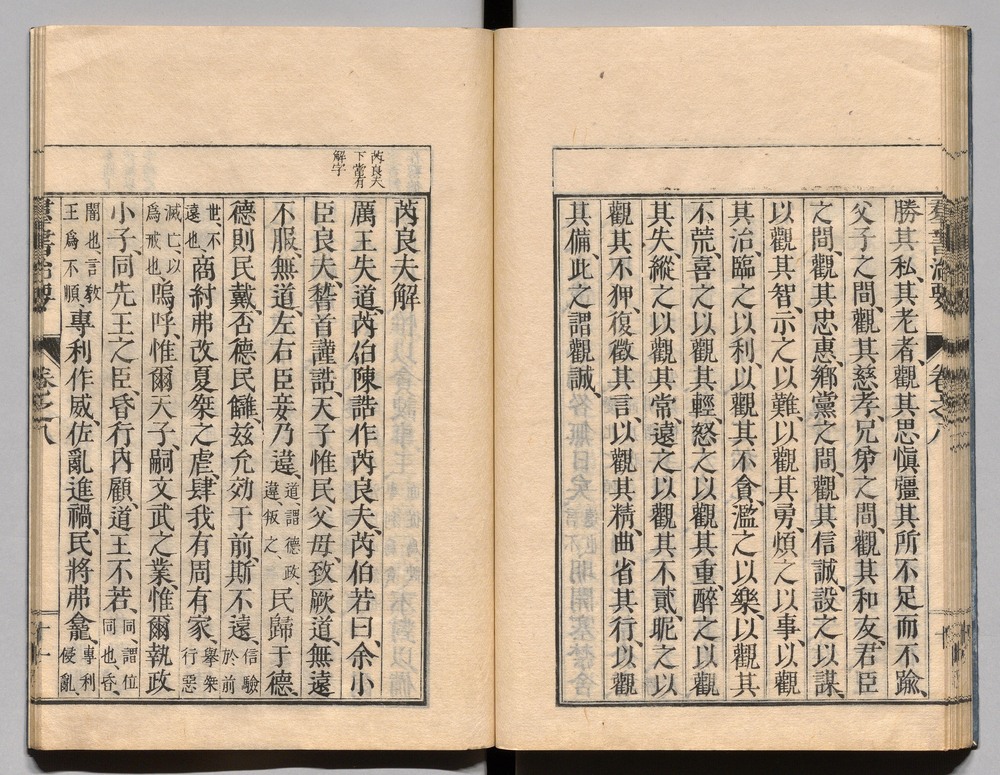 勝其私、其老者、觀其思愼、彊其所不足而不踰、
父子之間、觀其慈孝、兄弟之間、觀其和友、君臣
之間、觀其忠惠、鄉黨之間、觀其信誠、設之以謀、
以觀其智、示之以難、以觀其勇、煩之以事、以觀
其治、臨之以利、以觀其不貪、濫之以樂、以觀其
不荒、喜之以觀其輕、怒之以觀其重、醉之以觀
其失、縱之以觀其常、遠之以觀其不貳、昵之以
觀其不狎、復徵其言、以觀其精、曲省其行、以觀
其備、此之謂觀誠、
羣書治要
卷之八
十
芮良夫
下當有
解字
芮良夫解
厲王失道、芮伯陳誥、作芮良夫、芮伯若曰、余小
臣良夫、稽首謹誥、天子惟民父母、致厥道、無遠
不服、無道、左右臣妾乃違、道、謂德政、違、叛之、民歸于德、
德則民戴、否德民讎、兹允効于前、斯不遠、信驗於前
世、不遠也、商紂弗改夏桀之虐、肆我有周有家、舉桀行惡
滅亡、以爲戒也、嗚呼、惟爾天子、嗣文武之業、惟爾執政
小子、同先王之臣、昏行內顧、道王不若、同、謂位同也、昏、
闇也、言教王爲不順、專利作威、佐亂進禍、民將弗龕、專利侵亂、
羣書治要
卷之八
十一